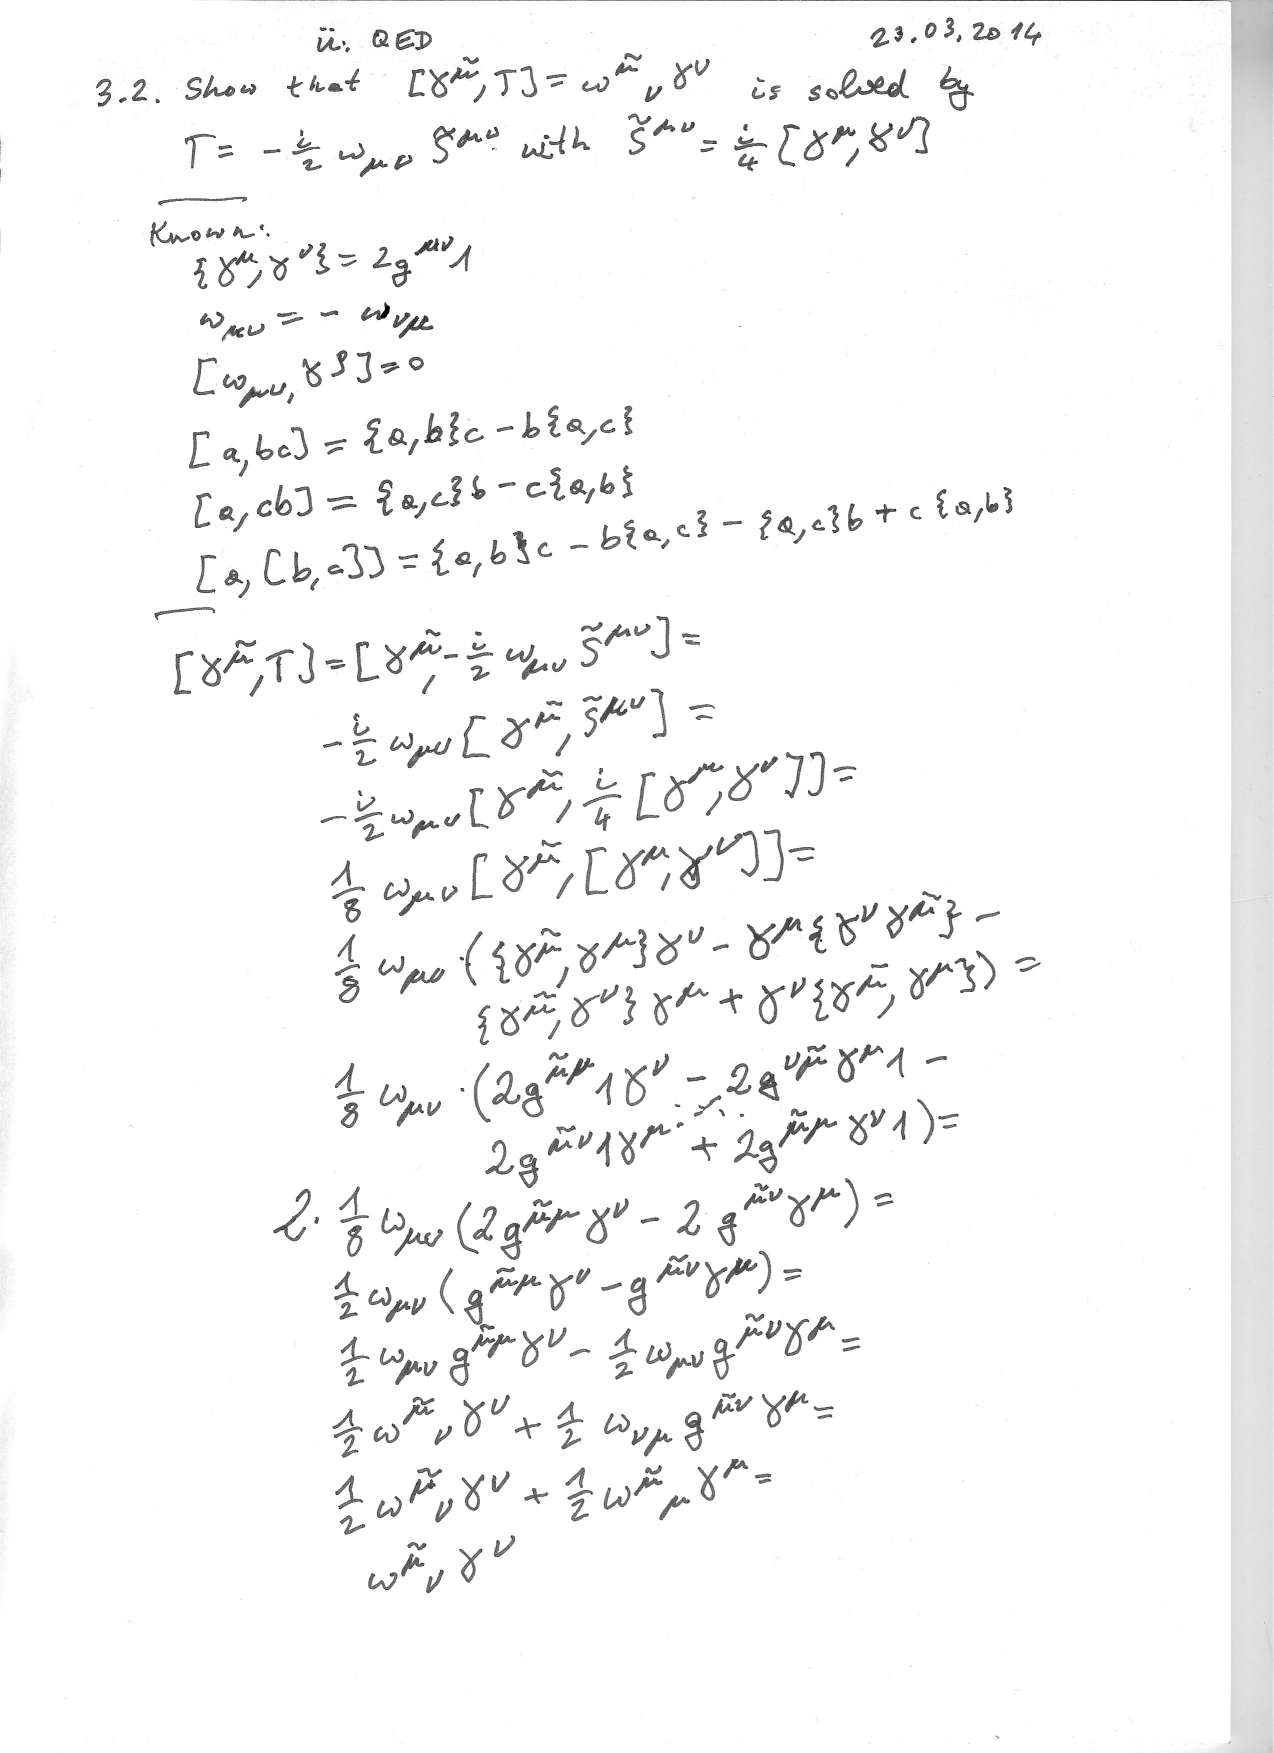 ü. QED 23.03.2014
3.2. Show that [γ^μ̃, T] = ω^μ̃_ν γ^ν is solved by
T = -i/2 ω_μν S̃^μν with S̃^μν = i/4 [γ^μ, γ^ν]
Known:
{γ^μ, γ^ν} = 2g^μν 1
ω_μν = - ω_νμ
[ω_μν, γ^ρ] = 0
[a, bc] = {a, b}c - b{a, c}
[a, cb] = {a, c}b - c{a, b}
[a, [b, c]] = {a, b}c - b{a, c} - {a, c}b + c{a, b}
[γ^μ̃, T] = [γ^μ̃, -i/2 ω_μν S̃^μν] =
-i/2 ω_μν [γ^μ̃, S̃^μν] =
-i/2 ω_μν [γ^μ̃, i/4 [γ^μ, γ^ν]] =
1/8 ω_μν [γ^μ̃, [γ^μ, γ^ν]] =
1/8 ω_μν · ({γ^μ̃, γ^μ}γ^ν - γ^μ{γ^ν γ^μ̃} -
{γ^μ̃, γ^ν}γ^μ + γ^ν{γ^μ̃, γ^μ}) =
1/8 ω_μν · (2g^μ̃μ 1γ^ν - 2g^νμ̃ γ^μ 1 -
2g^μ̃ν 1γ^μ + 2g^μ̃μ γ^ν 1) =
2 · 1/8 ω_μν (2g^μ̃μ γ^ν - 2g^μ̃ν γ^μ) =
1/2 ω_μν (g^μ̃μ γ^ν - g^μ̃ν γ^μ) =
1/2 ω_μν g^μ̃μ γ^ν - 1/2 ω_μν g^μ̃ν γ^μ =
1/2 ω^μ̃_ν γ^ν + 1/2 ω_νμ g^μ̃ν γ^μ =
1/2 ω^μ̃_ν γ^ν + 1/2 ω^μ̃_μ γ^μ =
ω^μ̃_ν γ^ν